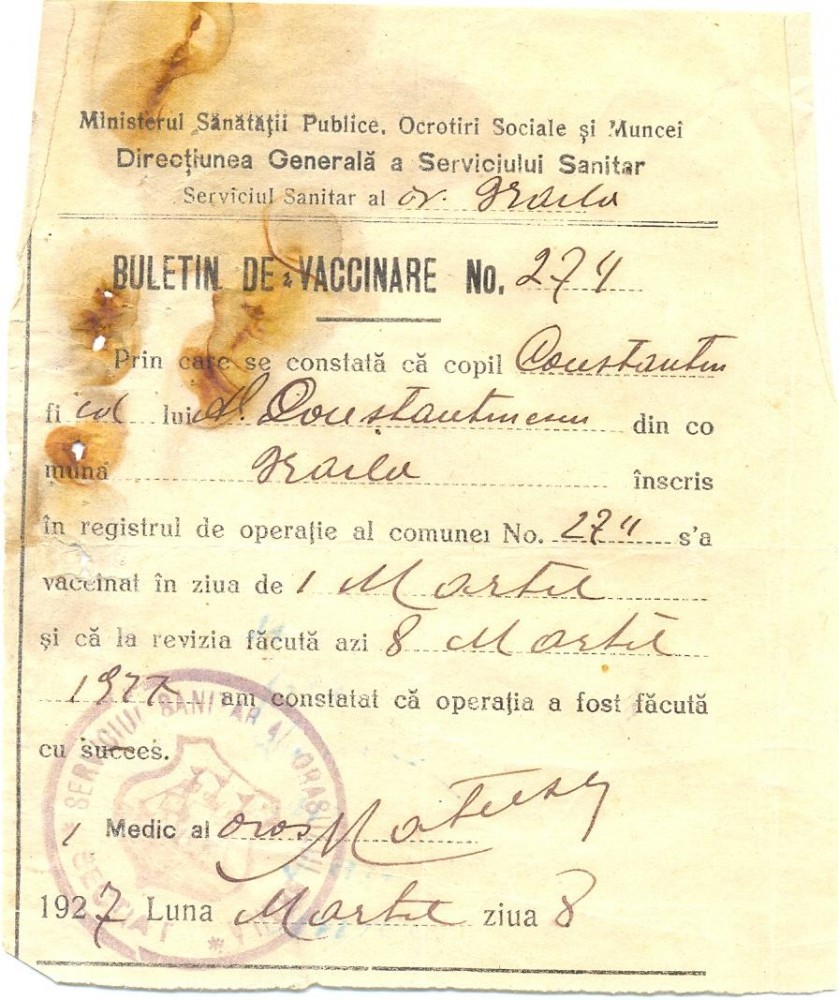 Ministerul Sănătății Publice, Ocrotiri Sociale și Muncei
Direcțiunea Generală a Serviciului Sanitar
Serviciul Sanitar al or. Braila
BULETIN DE VACCINARE No. 274
Prin care se constată că copil Constantin
fi ul lui Constantinescu din co
muna Braila înscris
în registrul de operație al comunei No. 274 s'a
vaccinat în ziua de 1 Martie
și că la revizia făcută azi 8 Martie
1927 am constatat că operația a fost făcută
cu succes.
Medic al oraș
1927 Luna Martie ziua 8
SERVICIUL SANITAR AL ORAȘULUI